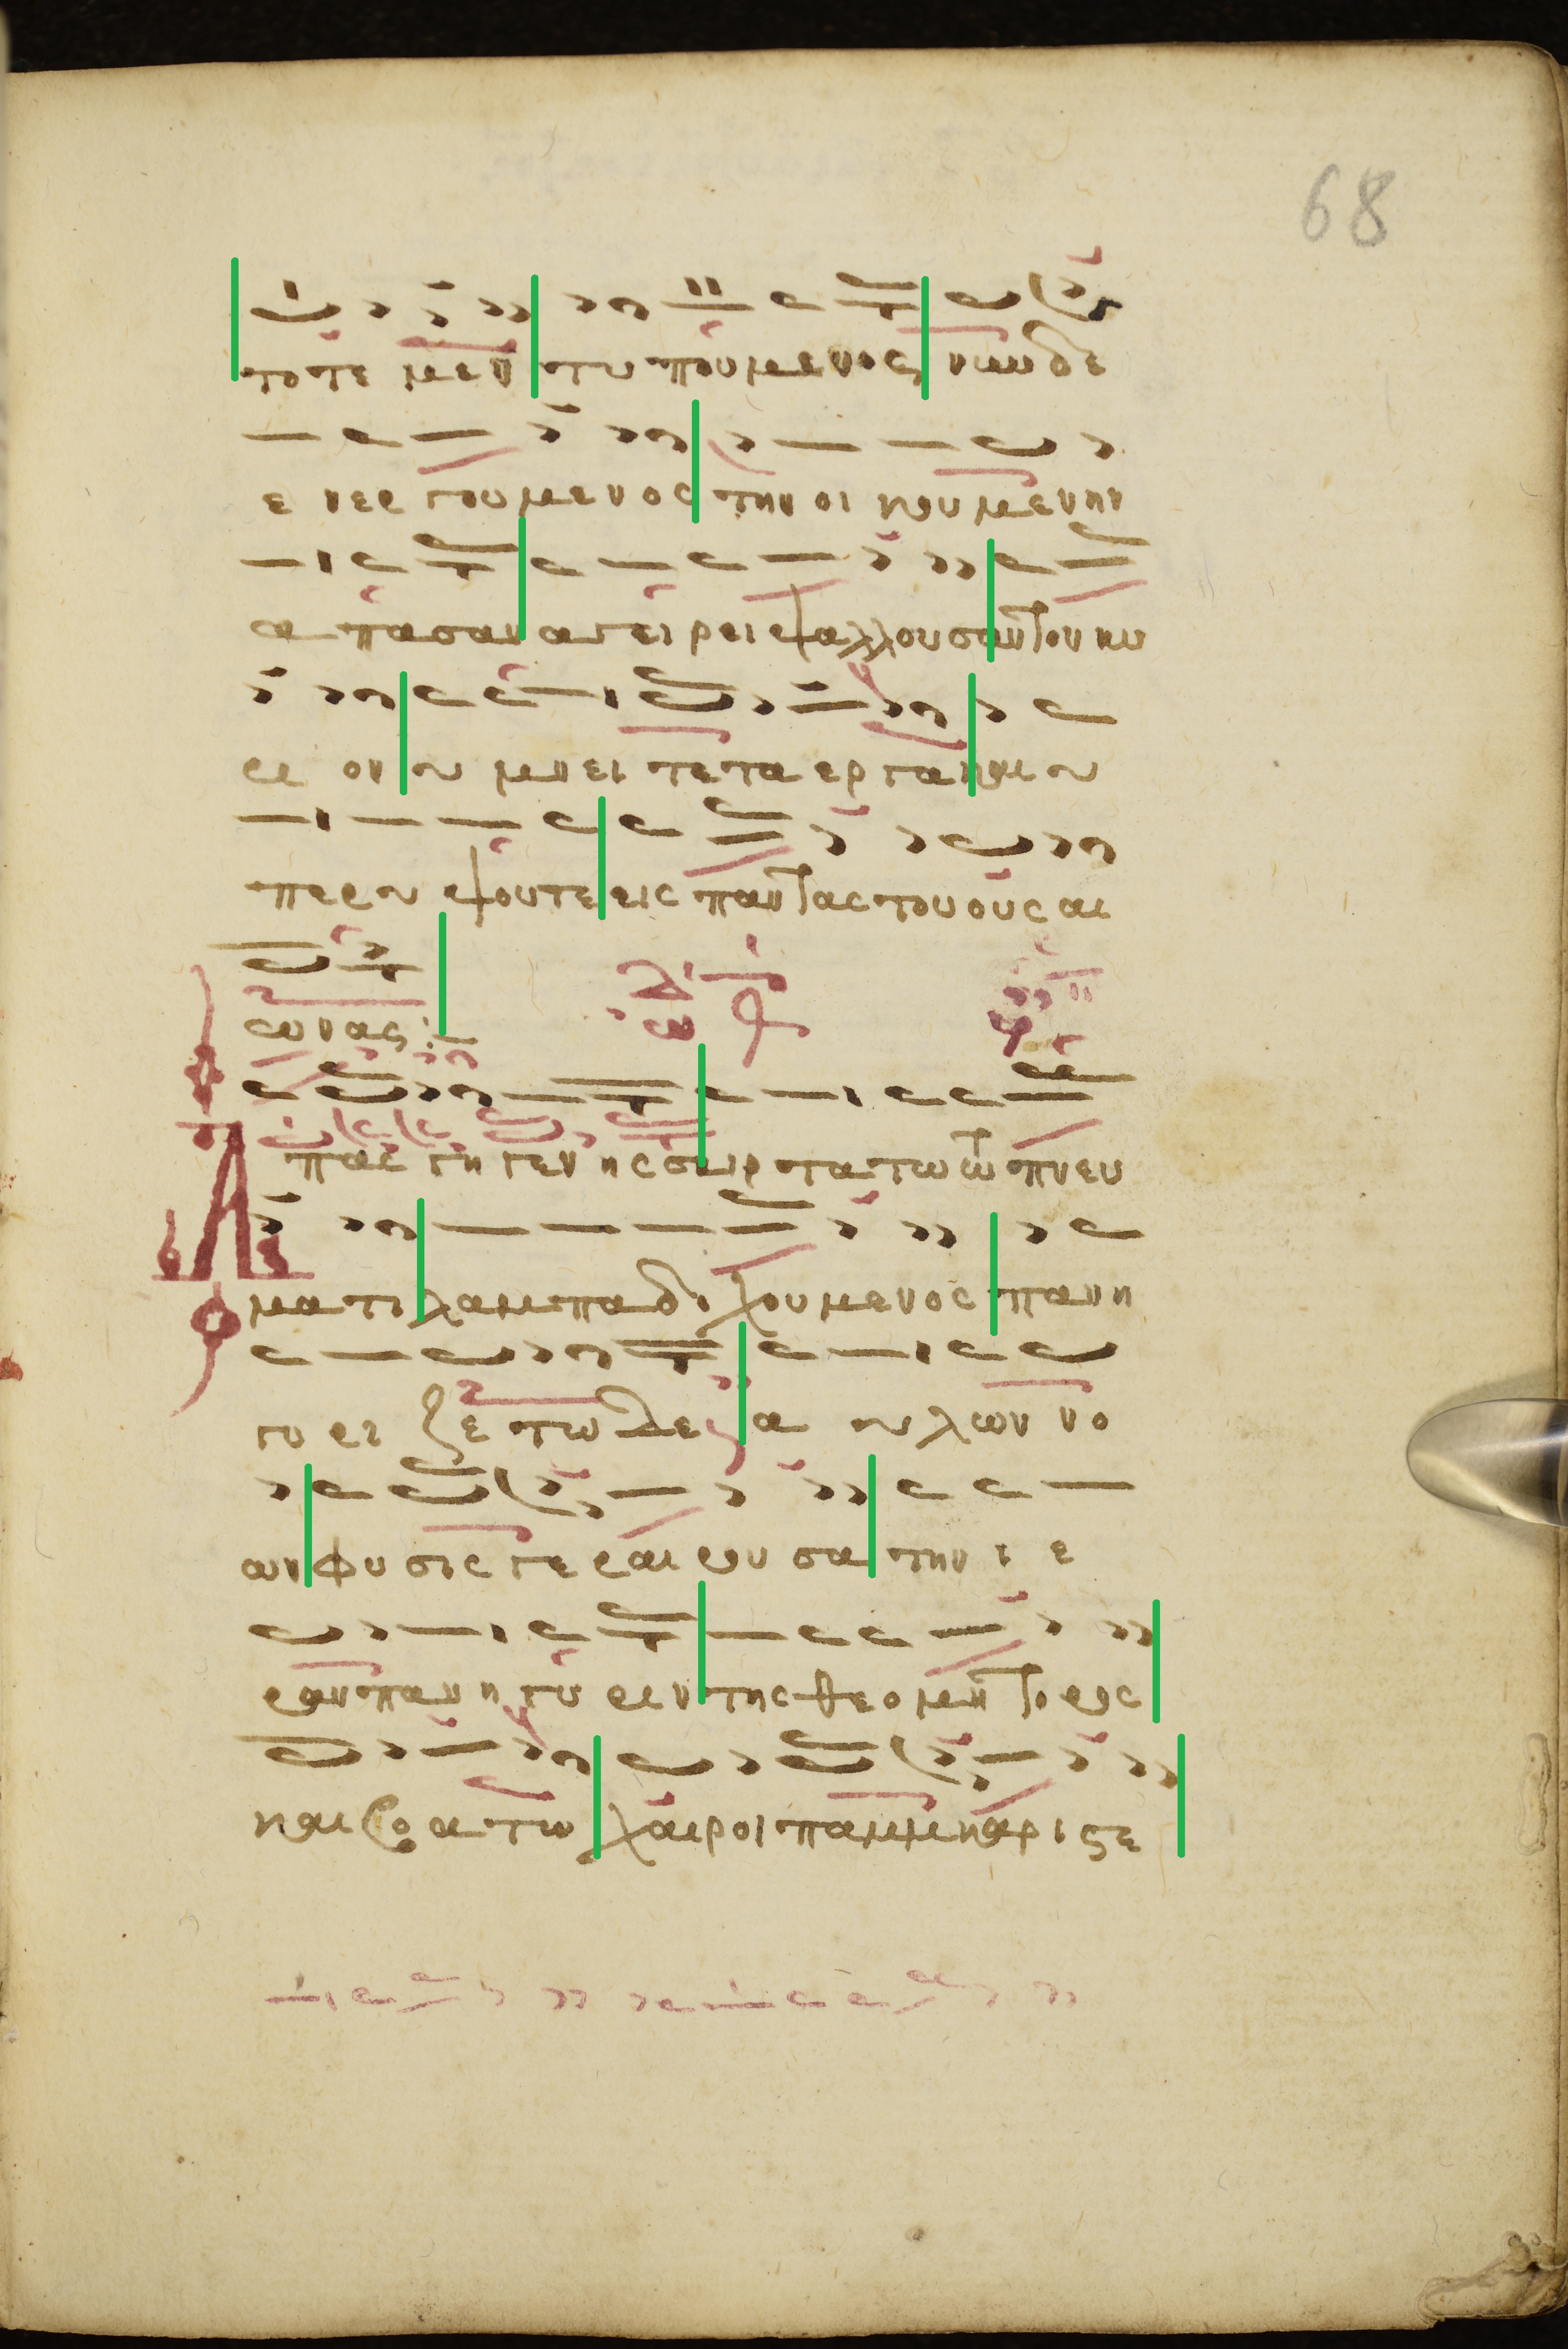 68
τοτε μεν τυπουμενος νυν δε
ενεργουμενος την οικουμενην
απασαν αγειρει ψαλλουσαν τον κυ
ριον υμνειτε τα εργα και υ
περυψουτε εις παντας τους αι
ωνας
πας γηγενης σκιρτατω τω πνευ
ματι λαμπαδουχουμενος πανη
γυριζετω δε αυλων νο
ων φυσις γεραιρουσα την ιε
ραν πανηγυριν της θεομητορος
και βοατω χαιροις παμμακαριστε